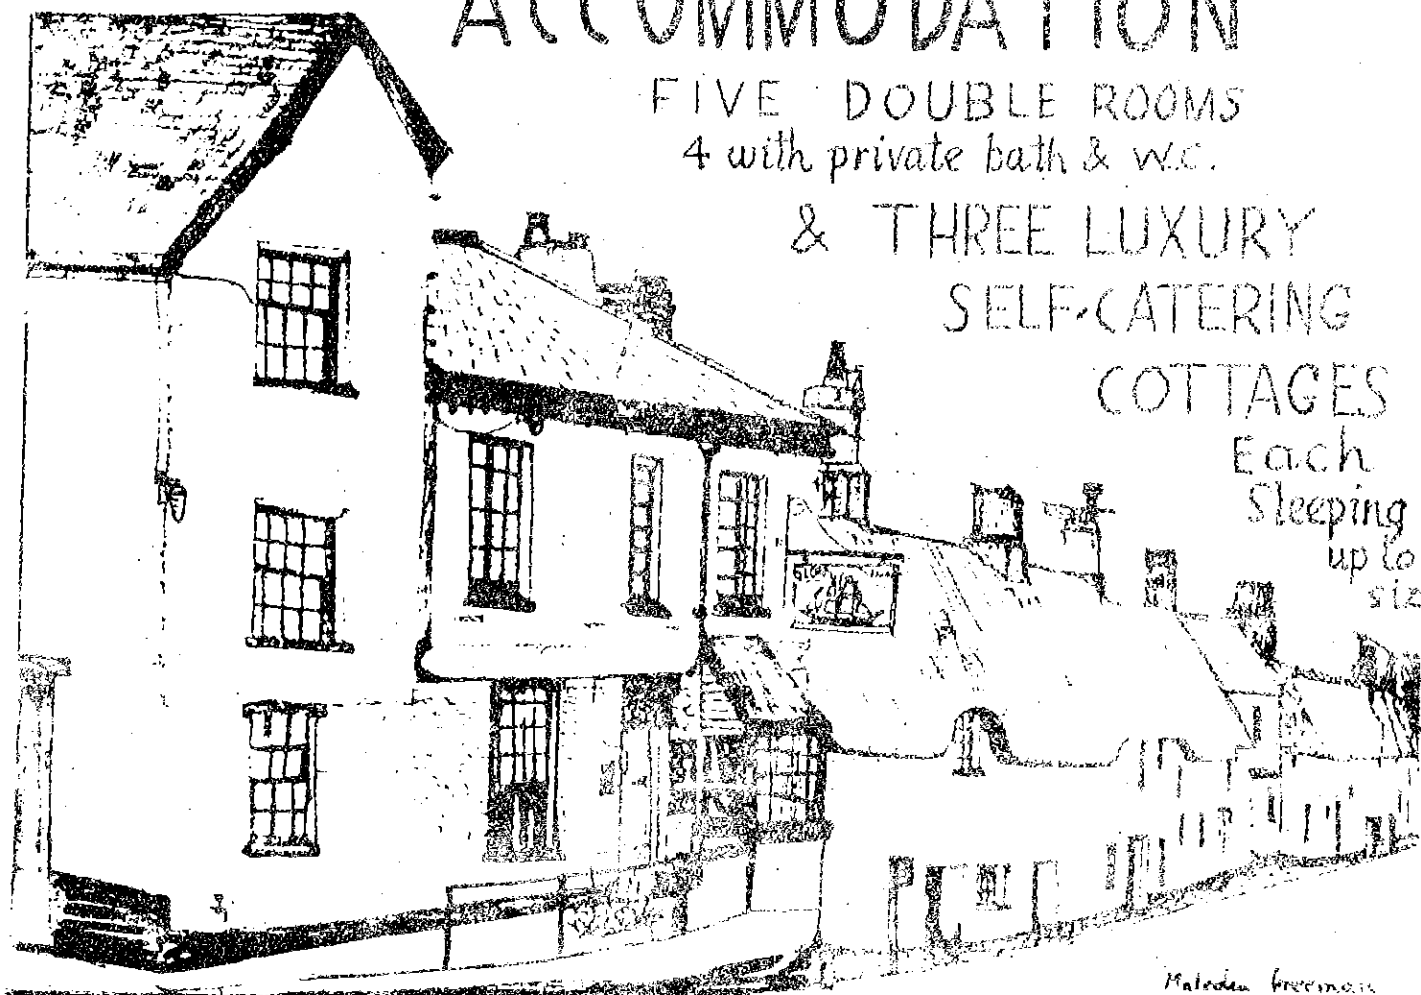 ACCOMMODATION
FIVE DOUBLE ROOMS
4 with private bath & W.C.
& THREE LUXURY
SELF-CATERING
COTTAGES
Each
Sleeping
up to
Freeman